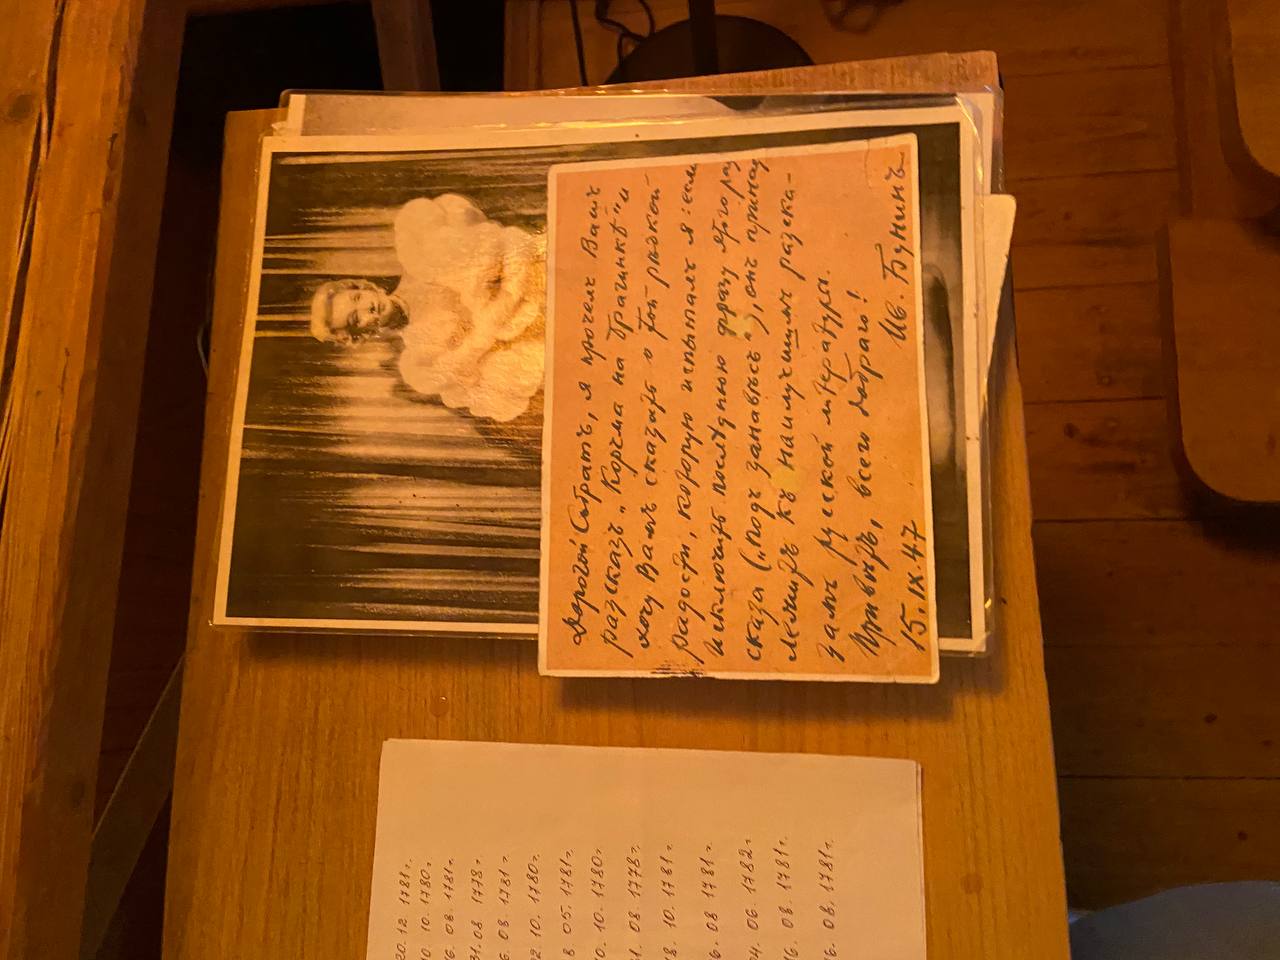 Дорогой Собратъ, я прочелъ Вашъ
разсказъ „Корчма на Брагинкѣ" и
хочу Вамъ сказать о той рѣдкой
радости, которую испыталъ я: если
исключить послѣднюю фразу этого раз
сказа („подъ занавѣсъ"), онъ принад
лежитъ къ наилучшимъ разска-
замъ русской литературы.
Привѣтъ, всего добраго!
15. IX. 47 Ив. Бунинъ
20. 12. 1781г.
10 10. 1780г.
16. 08. 1781г
31. 08 1778г
6. 08. 1781г
2. 10. 1780г.
8 05. 1781г.
0. 10. 1780г
1. 08. 1778г.
8. 10. 1781г
6. 08 1781г
4. 06. 1782г
16. 08. 1781г.
6. 08. 1781г.